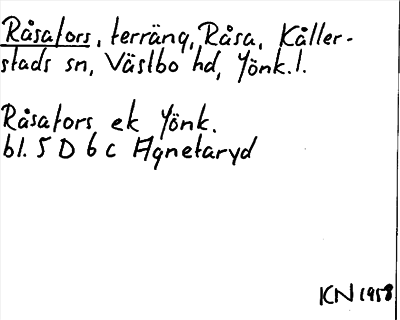 Råsafors, terräng, Råsa, Kåller-
stads sn, Västbo hd, Jönk.l.
Råsafors ek Jönk.
bl. 5 D 6 c Agnetaryd
KN 1958